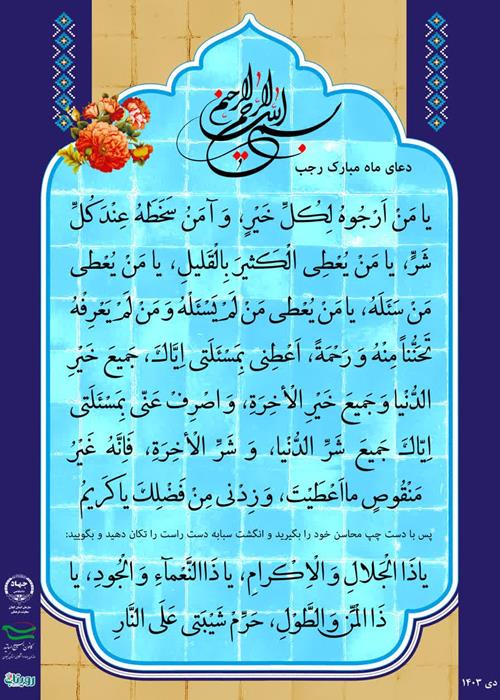 بسم الله الرحمن الرحیم
دعای ماه مبارک رجب
یا مَنْ اَرْجُوهُ لِکُلِّ خَیْرٍ، وَ آمَنُ سَخَطَهُ عِنْدَ کُلِّ
شَرٍّ، یا مَنْ یُعْطِی الْکَثیرَ بِالْقَلیلِ، یا مَنْ یُعْطی
مَنْ سَئَلَهُ، یا مَنْ یُعْطی مَنْ لَمْ یَسْئَلْهُ وَ مَنْ لَمْ یَعْرِفْهُ
تَحَنُّناً مِنْهُ وَ رَحْمَةً، اَعْطِنی بِمَسْئَلَتی اِیّاکَ، جَمیعَ خَیْرِ
الدُّنْیا وَ جَمیعَ خَیْرِ الْأخِرَةِ، وَ اصْرِفْ عَنّی بِمَسْئَلَتی
اِیّاکَ جَمیعَ شَرِّ الدُّنْیا، وَ شَرِّ الْأخِرَةِ، فَاِنَّهُ غَیْرُ
مَنْقُوصٍ مااَعْطَیْتَ، وَ زِدْنی مِنْ فَضْلِکَ یاکَریمُ
پس با دست چپ محاسن خود را بگیرید و انگشت سبابه دست راست را تکان دهید و بگویید:
یاذَا الْجَلالِ وَ الْاِکْرامِ، یا ذَاالنَّعْماءِ وَ الْجُودِ، یا
ذَا الْمَنِّ وَ الطَّوْلِ، حَرِّمْ شَیْبَتی عَلَی النَّارِ
جهاد
دی ۱۴۰۳